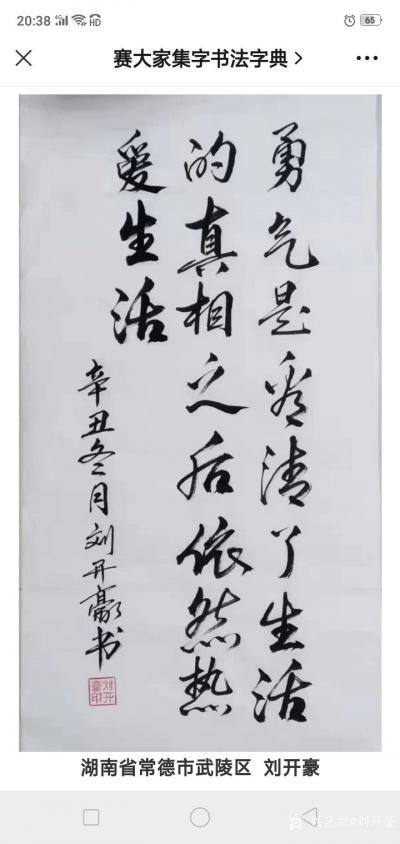 20:38
4G
HD
65
赛大家集字书法字典
勇气是看清了生活
的真相之后依然热
爱生活
辛丑冬月刘开豪书
刘开豪印
湖南省常德市武陵区 刘开豪
艺堂@刘开豪